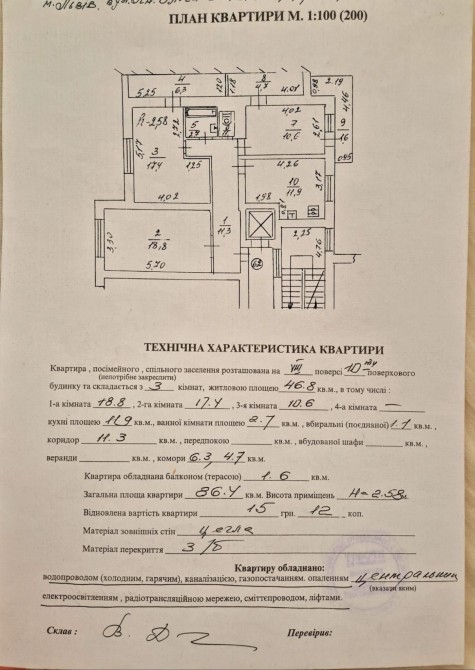 м. Львів, вул.
ПЛАН КВАРТИРИ М. 1:100 (200)
4
6,3
5.25
1.20
1.18
8
4.7
4.01
0.98
2.19
4.46
h-2,58
2,72
5
2.7
4.02
7
10.6
2.61
9
1.6
0.85
5,17
3
17,4
1.25
4.26
10
11,9
3,17
4.02
1.98
0.81
1
11.3
2.25
4.76
3,30
2
18.8
5.70
62
ТЕХНІЧНА ХАРАКТЕРИСТИКА КВАРТИРИ
Квартира , посімейного , спільного заселення розташована на VIII поверсі 10 ти поверхового
(непотрібне закреслити)
будинку та складається з 3 кімнат, житловою площею 46.8 кв.м., в тому числі :
1-а кімната 18.8 , 2-га кімната 17.4 , 3-я кімната 10.6 , 4-а кімната —
кухні площею 11,9 кв.м., ванної кімнати площею 2.7 кв.м., вбиральні (поєднаної) 1.1 кв.м.,
коридор 11.3 кв.м., передпокою кв.м., вбудованої шафи кв.м.,
веранди кв.м., комори 6.3, 4.7 кв.м.
Квартира обладнана балконом (терасою) 1.6 кв.м.
Загальна площа квартири 86.4 кв.м. Висота приміщень H-2.58м
Відновлена вартість квартири 15 грн. 12 коп.
Матеріал зовнішніх стін цегла
Матеріал перекриття З/Б
Квартиру обладнано:
водопроводом (холодним, гарячим), каналізацією, газопостачанням, опаленням центральним
(вказати яким)
електроосвітленням , радіотрансляційною мережею, сміттєпроводом, ліфтами.
Склав : Перевірив: